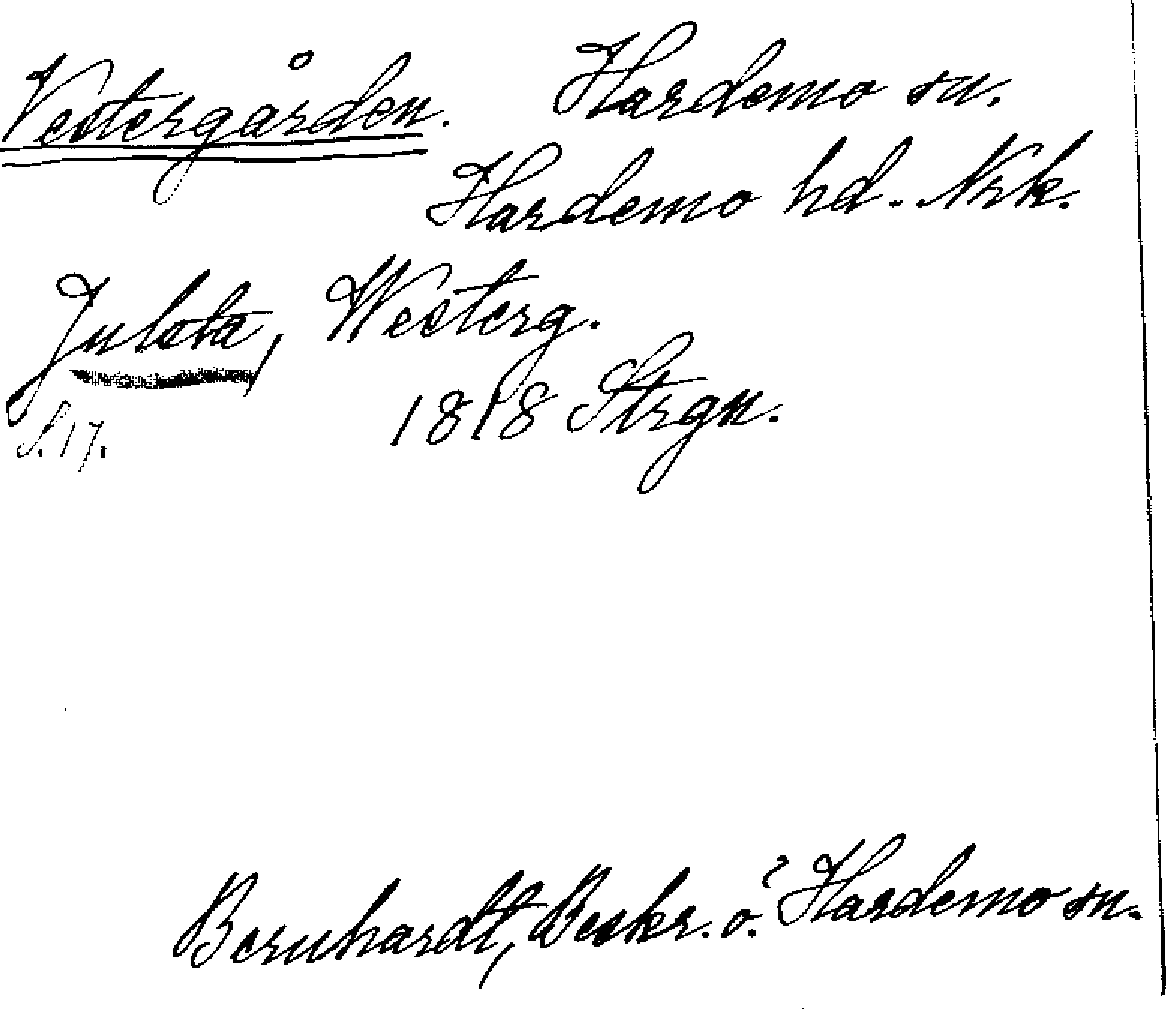 Vestergården. Hardemo sn.
Hardemo hd. Nrk.
Julsta, Westerg.
S. 17. 1818 Strgn.
Bernhardt, Beskr. ö. Hardemo sn.